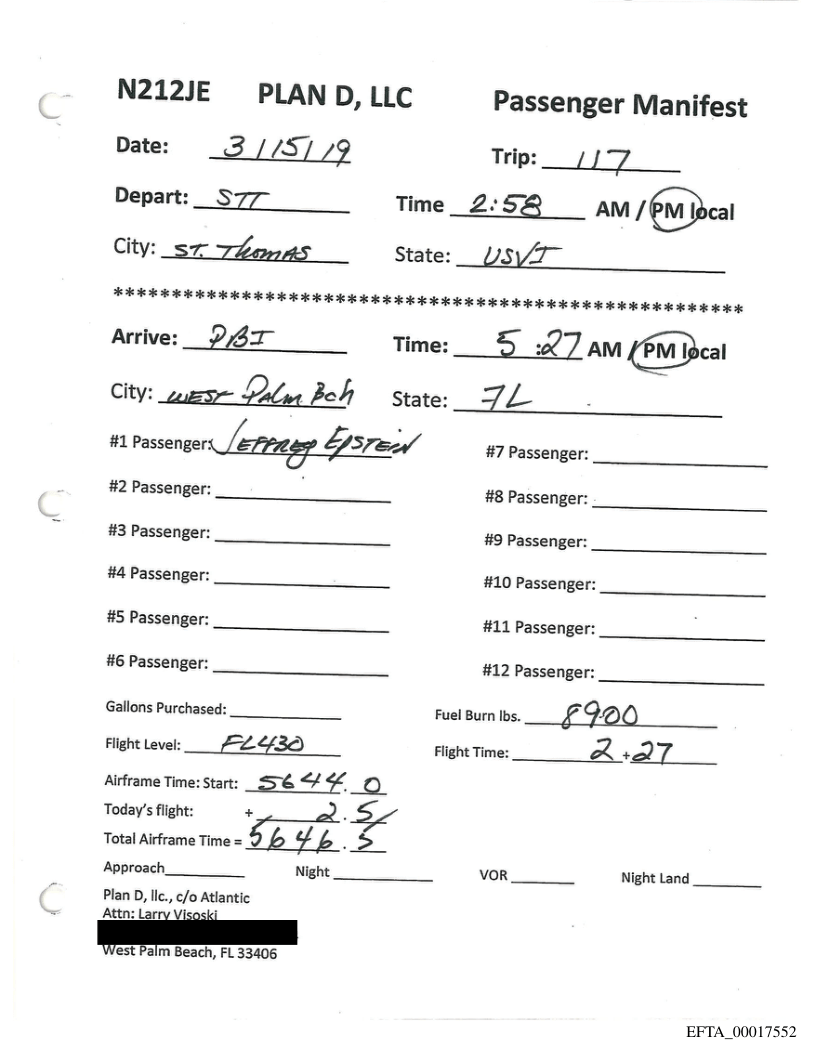 N212JE PLAN D, LLC Passenger Manifest
Date: 3/15/19 Trip: 117
Depart: STT Time 2:58 AM / PM local
City: ST. THOMAS State: USVI
****************************************************************
Arrive: PBI Time: 5:27 AM / PM local
City: WEST PALM BCH State: FL
#1 Passenger: JEFFREY EPSTEIN #7 Passenger:
#2 Passenger: #8 Passenger:
#3 Passenger: #9 Passenger:
#4 Passenger: #10 Passenger:
#5 Passenger: #11 Passenger:
#6 Passenger: #12 Passenger:
Gallons Purchased: Fuel Burn lbs. 8900
Flight Level: FL430 Flight Time: 2 + 27
Airframe Time: Start: 5644.0
Today's flight: + 2.5
Total Airframe Time = 5646.5
Approach Night VOR Night Land
Plan D, llc., c/o Atlantic
Attn: Larry Visoski
West Palm Beach, FL 33406
EFTA_00017552